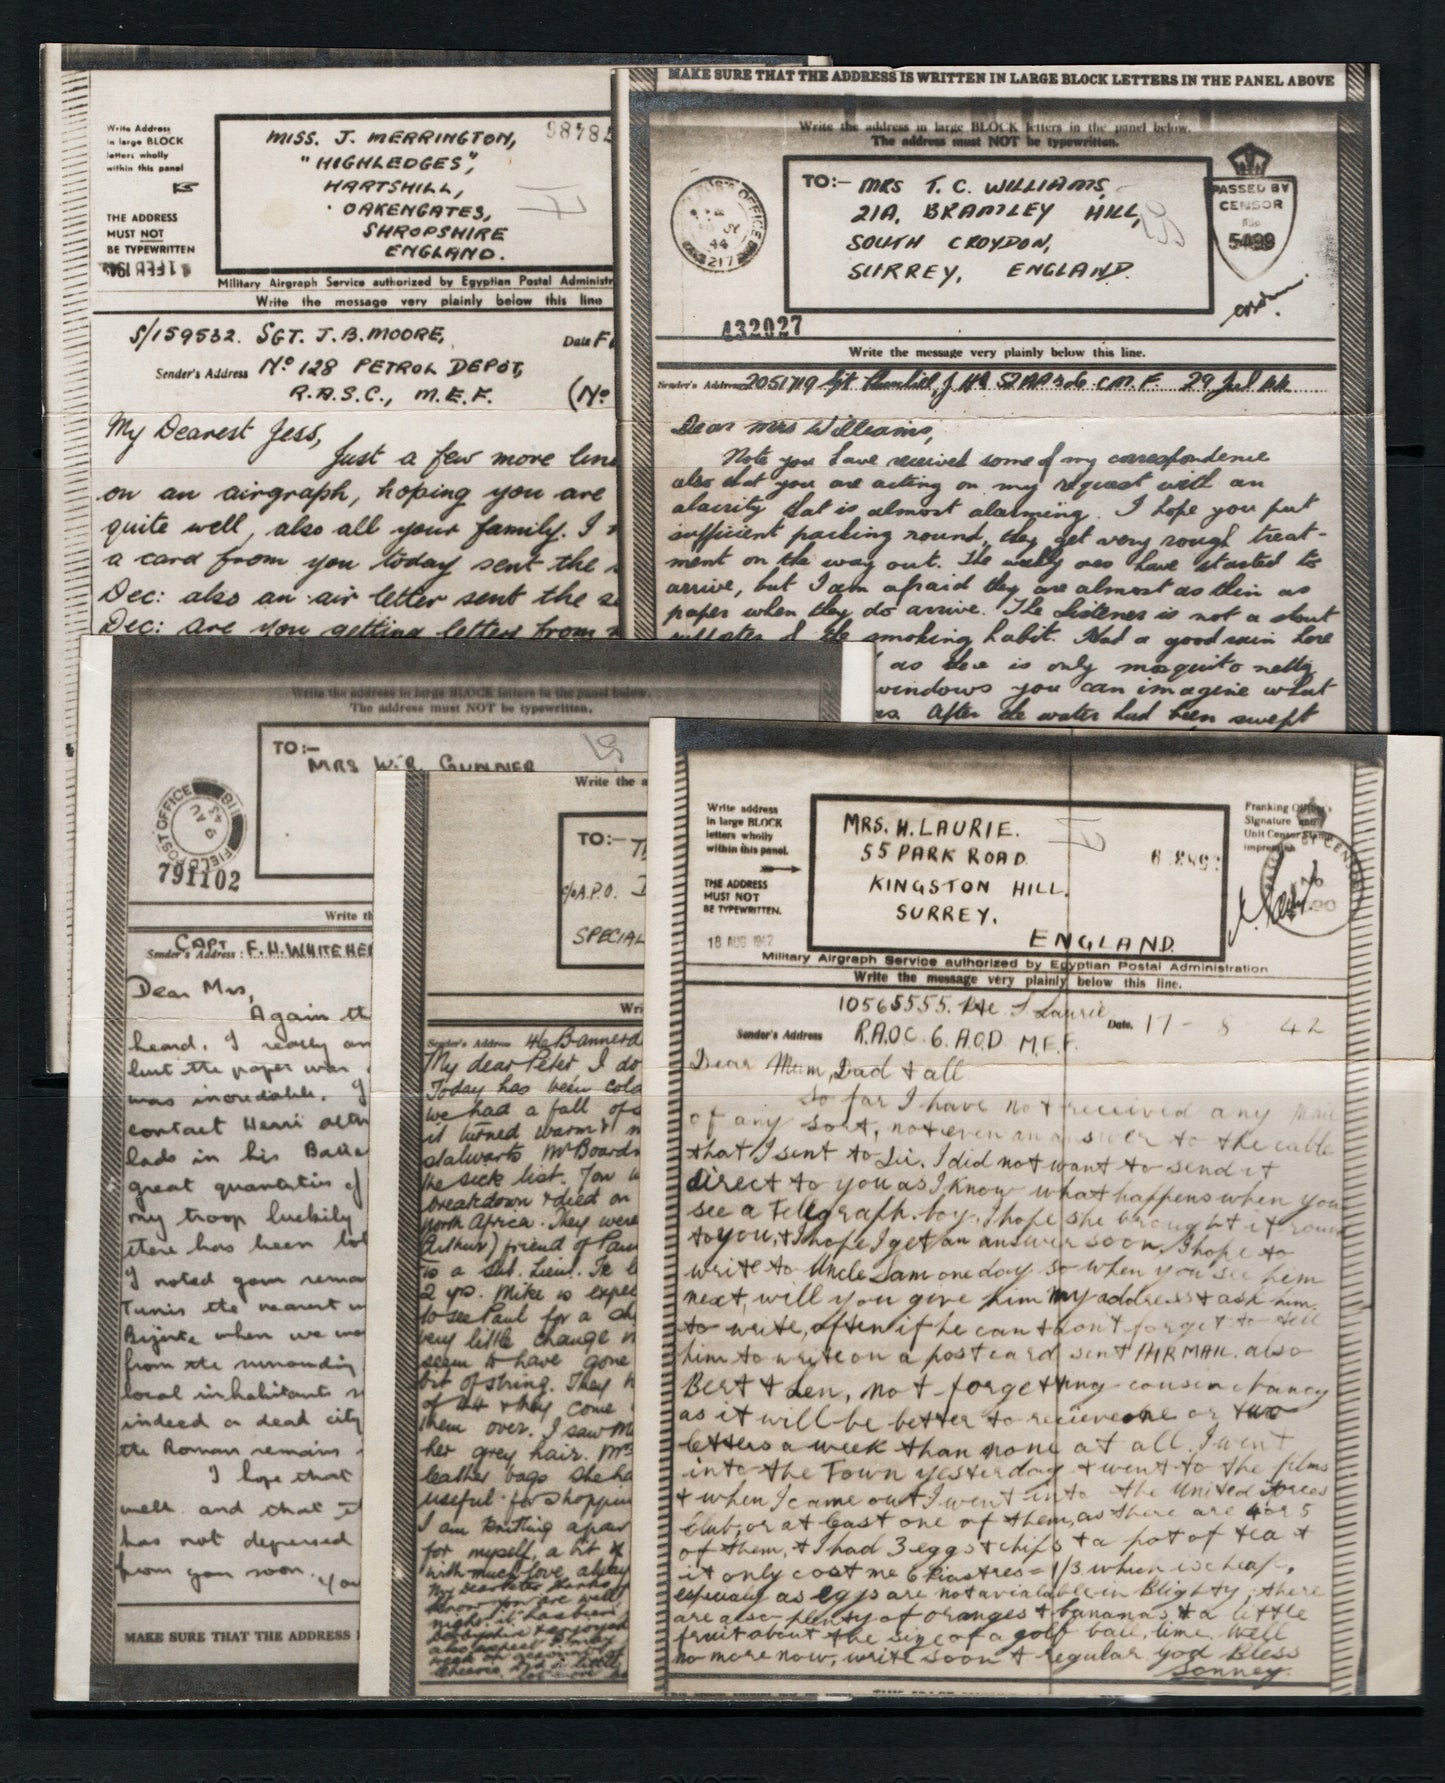 Write Address
in large BLOCK
letters wholly
within this panel
THE ADDRESS
MUST NOT
BE TYPEWRITTEN
MISS. J. MERRINGTON,
"HIGHLEDGES",
HARTSHILL,
OAKENGATES,
SHROPSHIRE
ENGLAND.
Military Airgraph Service authorized by Egyptian Postal Administr
Write the message very plainly below this line
S/159532. SGT. J.B. MOORE,
Date
Sender's Address No 128 PETROL DEPOT,
R.A.S.C., M.E.F.
(No
My Dearest Jess,
Just a few more line
on an airgraph, hoping you are
quite well, also all your family. I
a card from you today sent the
Dec: also an air letter sent the
Dec: are you getting letters from
MAKE SURE THAT THE ADDRESS IS WRITTEN IN LARGE BLOCK LETTERS IN THE PANEL ABOVE
Write the address in large BLOCK letters in the panel below.
The address must NOT be typewritten.
TO:- MRS T. C. WILLIAMS,
21A, BRAMLEY HILL,
SOUTH CROYDON,
SURREY, ENGLAND.
PASSED BY
CENSOR
No
5499
432027
Write the message very plainly below this line.
Sender's Address 2051719 Sgt
C.M.F. 29 Jul 44
Dear Mrs Williams,
Note you have received some of my correspondence
also that you are acting on my request with an
alacrity that is almost alarming. I hope you put
sufficient packing round, they get very rough treat-
ment on the way out. The weekly ones have started to
arrive, but I am afraid they are almost as thin as
paper when they do arrive. The Listener is not a stout
of the smoking habit. Had a good rain here
as there is only mosquito netting
windows you can imagine what
After the water had been swept
Write the address in large BLOCK letters in the panel below.
The address must NOT be typewritten.
TO:-
MRS W.R. GUNNER
FIELD POST OFFICE
791102
Write th
Sender's Address: CAPT. F. H. WHITEHE
Dear Mrs,
Again th
heard. I really am
but the paper was
was incredible. I
contact Henri after
lads in his Batte
great quantities of
my troop luckily
there has been lot
I noted your remar
Tunis the nearest
Bizerte when we
from the surrounding
local inhabitants
indeed a dead city
the Roman remains
I hope that
well and that
has not depressed
from you soon. You
MAKE SURE THAT THE ADDRESS
Write the a
TO:-
c/o A.P.O.
SPECIAL
Wri
Sender's Address 46 Bannerd
My dear Peter, I do
Today has been cold
we had a fall of
it turned warm &
stalwarts Mr Boards
the sick list.
breakdown & died on
North Africa. They were
Arthur) friend of Paul
is a sub. Lieu.
2 yrs. Mike is expec
to see Paul for a
very little change
seem to have gone
bit of string. They
of 44 & they come
them over. I saw
her grey hair. Mrs
leather bags she ha
useful for shoppin
I am knitting a pair
for myself, a bit
with much love
Write address
in large BLOCK
letters wholly
within this panel.
THE ADDRESS
MUST NOT
BE TYPEWRITTEN.
18 AUG 1942
MRS. H. LAURIE.
55 PARK ROAD.
KINGSTON HILL.
SURREY.
ENGLAND.
Franking Officer's
Signature and
Unit Censor Stamp
impression
Military Airgraph Service authorized by Egyptian Postal Administration
Write the message very plainly below this line.
10565555. Pte. Laurie
Sender's Address R.A.O.C. 6. A.O.D M.E.F. Date. 17 - 8 42
Dear Mum, Dad & all
So far I have not received any mail
of any sort, not even an answer to the cable
that I sent to Lii. I did not want to send it
direct to you as I know what happens when you
see a Telegraph boy. I hope she brought it round
to you, & I hope I get an answer soon. I hope to
write to Uncle Sam one day so when you see him
next, will you give him my address & ask him
to write, often if he can & dont forget to tell
him to write on a postcard sent AIR MAIL. also
Bert & Len, not forgetting cousin Nancy
as it will be better to recieve one or two
letters a week than none at all. I went
into the Town yesterday & went to the films
& when I came out I went into the United Forces
Club, or at least one of them, as there are 4 or 5
of them, & I had 3 eggs & chips & a pot of tea &
it only cost me 6 Piastres = 1/3 which is cheap,
especially as eggs are not avialable in Blighty, there
are also plenty of oranges & bananas & a little
fruit about the size of a golf ball, lime. Well
no more now, write soon & regular, god Bless
Sonney.